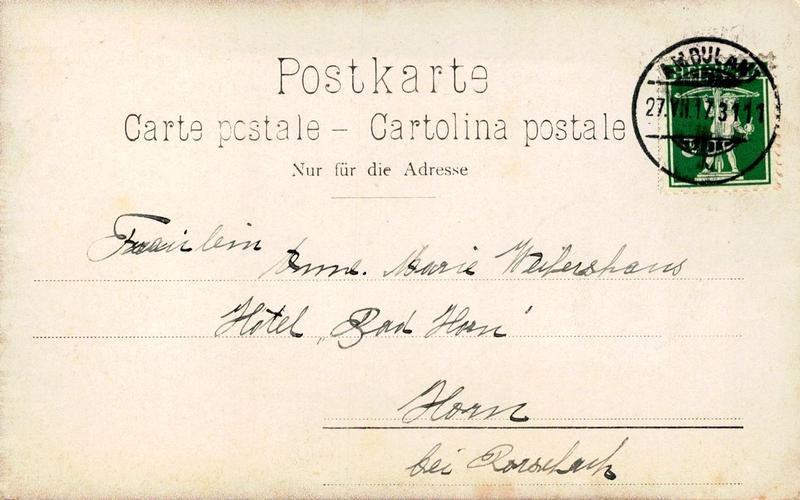 Postkarte
Carte postale – Cartolina postale
Nur für die Adresse
AMBULANT
27.VII.17 3111
Fräulein Anne. Marie Weifershaus
Hôtel „Bad Horn"
Horn
bei Rorschach